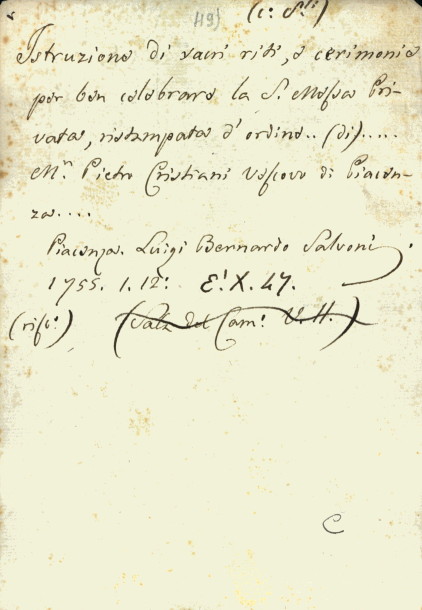 119) (c: S.ti)
Istruzione di sacri riti, e cerimonie
per ben celebrare la S. Messa Pri-
vata, ristampata d' ordine.. (di).....
M.r Pietro Cristiani Vescovo di Piacen-
za....
Piacenza. Luigi Bernardo Salvoni.
1755. 1. 12.° E.' X. 47.
(rist.) (Sala del Cam.° V. H.)
C